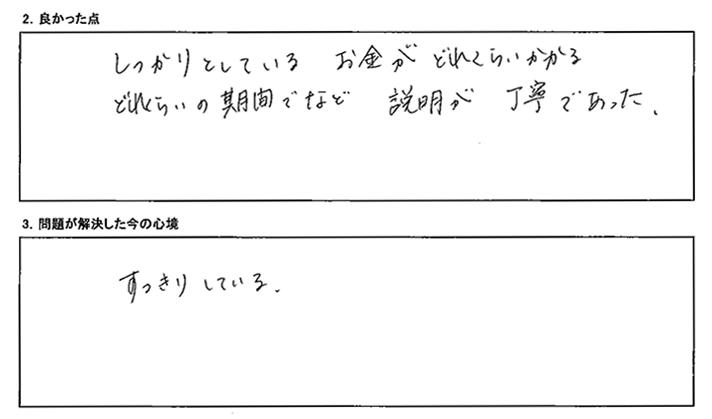 2. 良かった点
しっかりとしている お金が どれくらいかかる
どれくらいの期間でなど 説明が 丁寧であった.
3. 問題が解決した今の心境
すっきりしている.